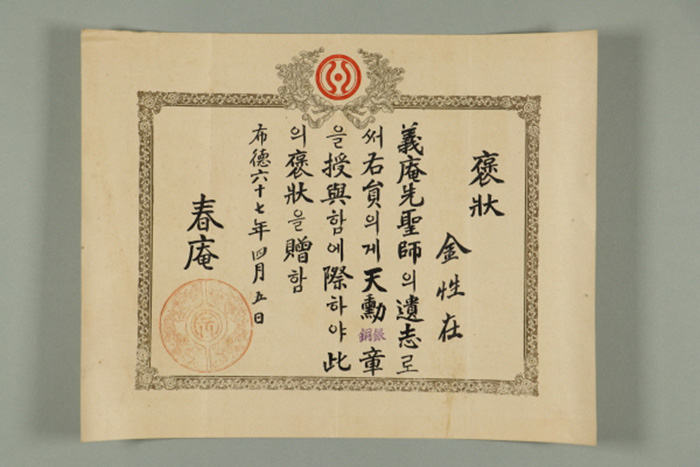 褒狀
金性在
義庵先聖師의遺志로
써右員의게天勳銀銅章
을授與함에際하야此
의褒狀을贈함
布德六十七年四月五日
春庵